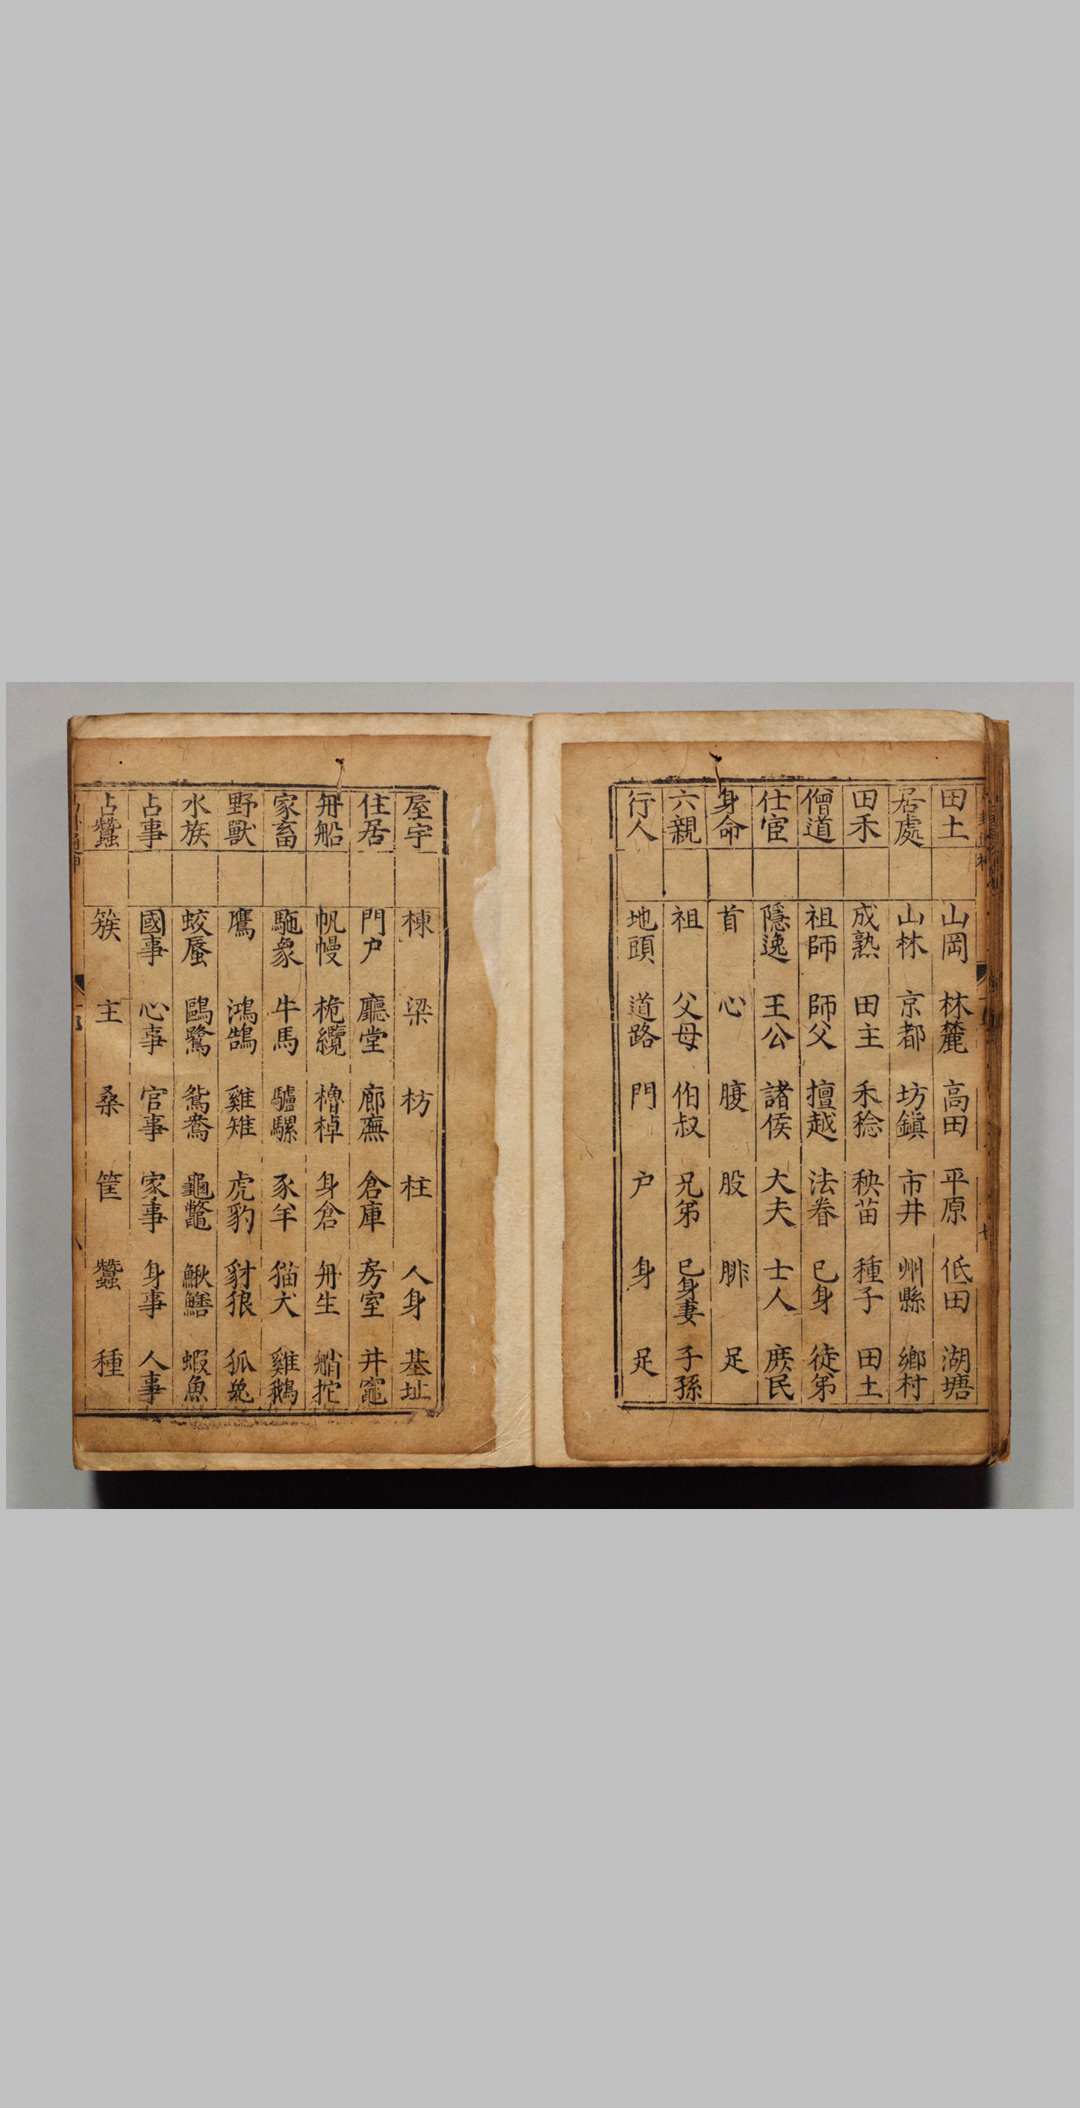 田土 山岡 林麓 高田 平原 低田 湖塘
居處 山林 京都 坊鎮 市井 州縣 鄉村
田禾 成熟 田主 禾稔 秧苗 種子 田土
僧道 祖師 師父 擅越 法眷 已身 徒弟
仕宦 隱逸 王公 諸侯 大夫 士人 庶民
身命 首 心 腹 股 腓 足
六親 祖 父母 伯叔 兄弟 已身妻 子孫
行人 地頭 道路 門 户 身 足
屋宇 棟 梁 枋 柱 人身 基址
住居 門户 廳堂 廊廡 倉庫 房室 井竈
舟船 帆幔 桅纜 櫓棹 身倉 舟生 艄拕
家畜 駞象 牛馬 驢騾 豕羊 猫犬 雞鵝
野獸 鷹 鴻鵠 雞雉 虎豹 豺狼 狐兔
水族 蛟蜃 鷗鷺 鴛鴦 龜鼈 鰍鱔 蝦魚
占事 國事 心事 官事 家事 身事 人事
占蠶 簇 主 桑 筐 蠶 種